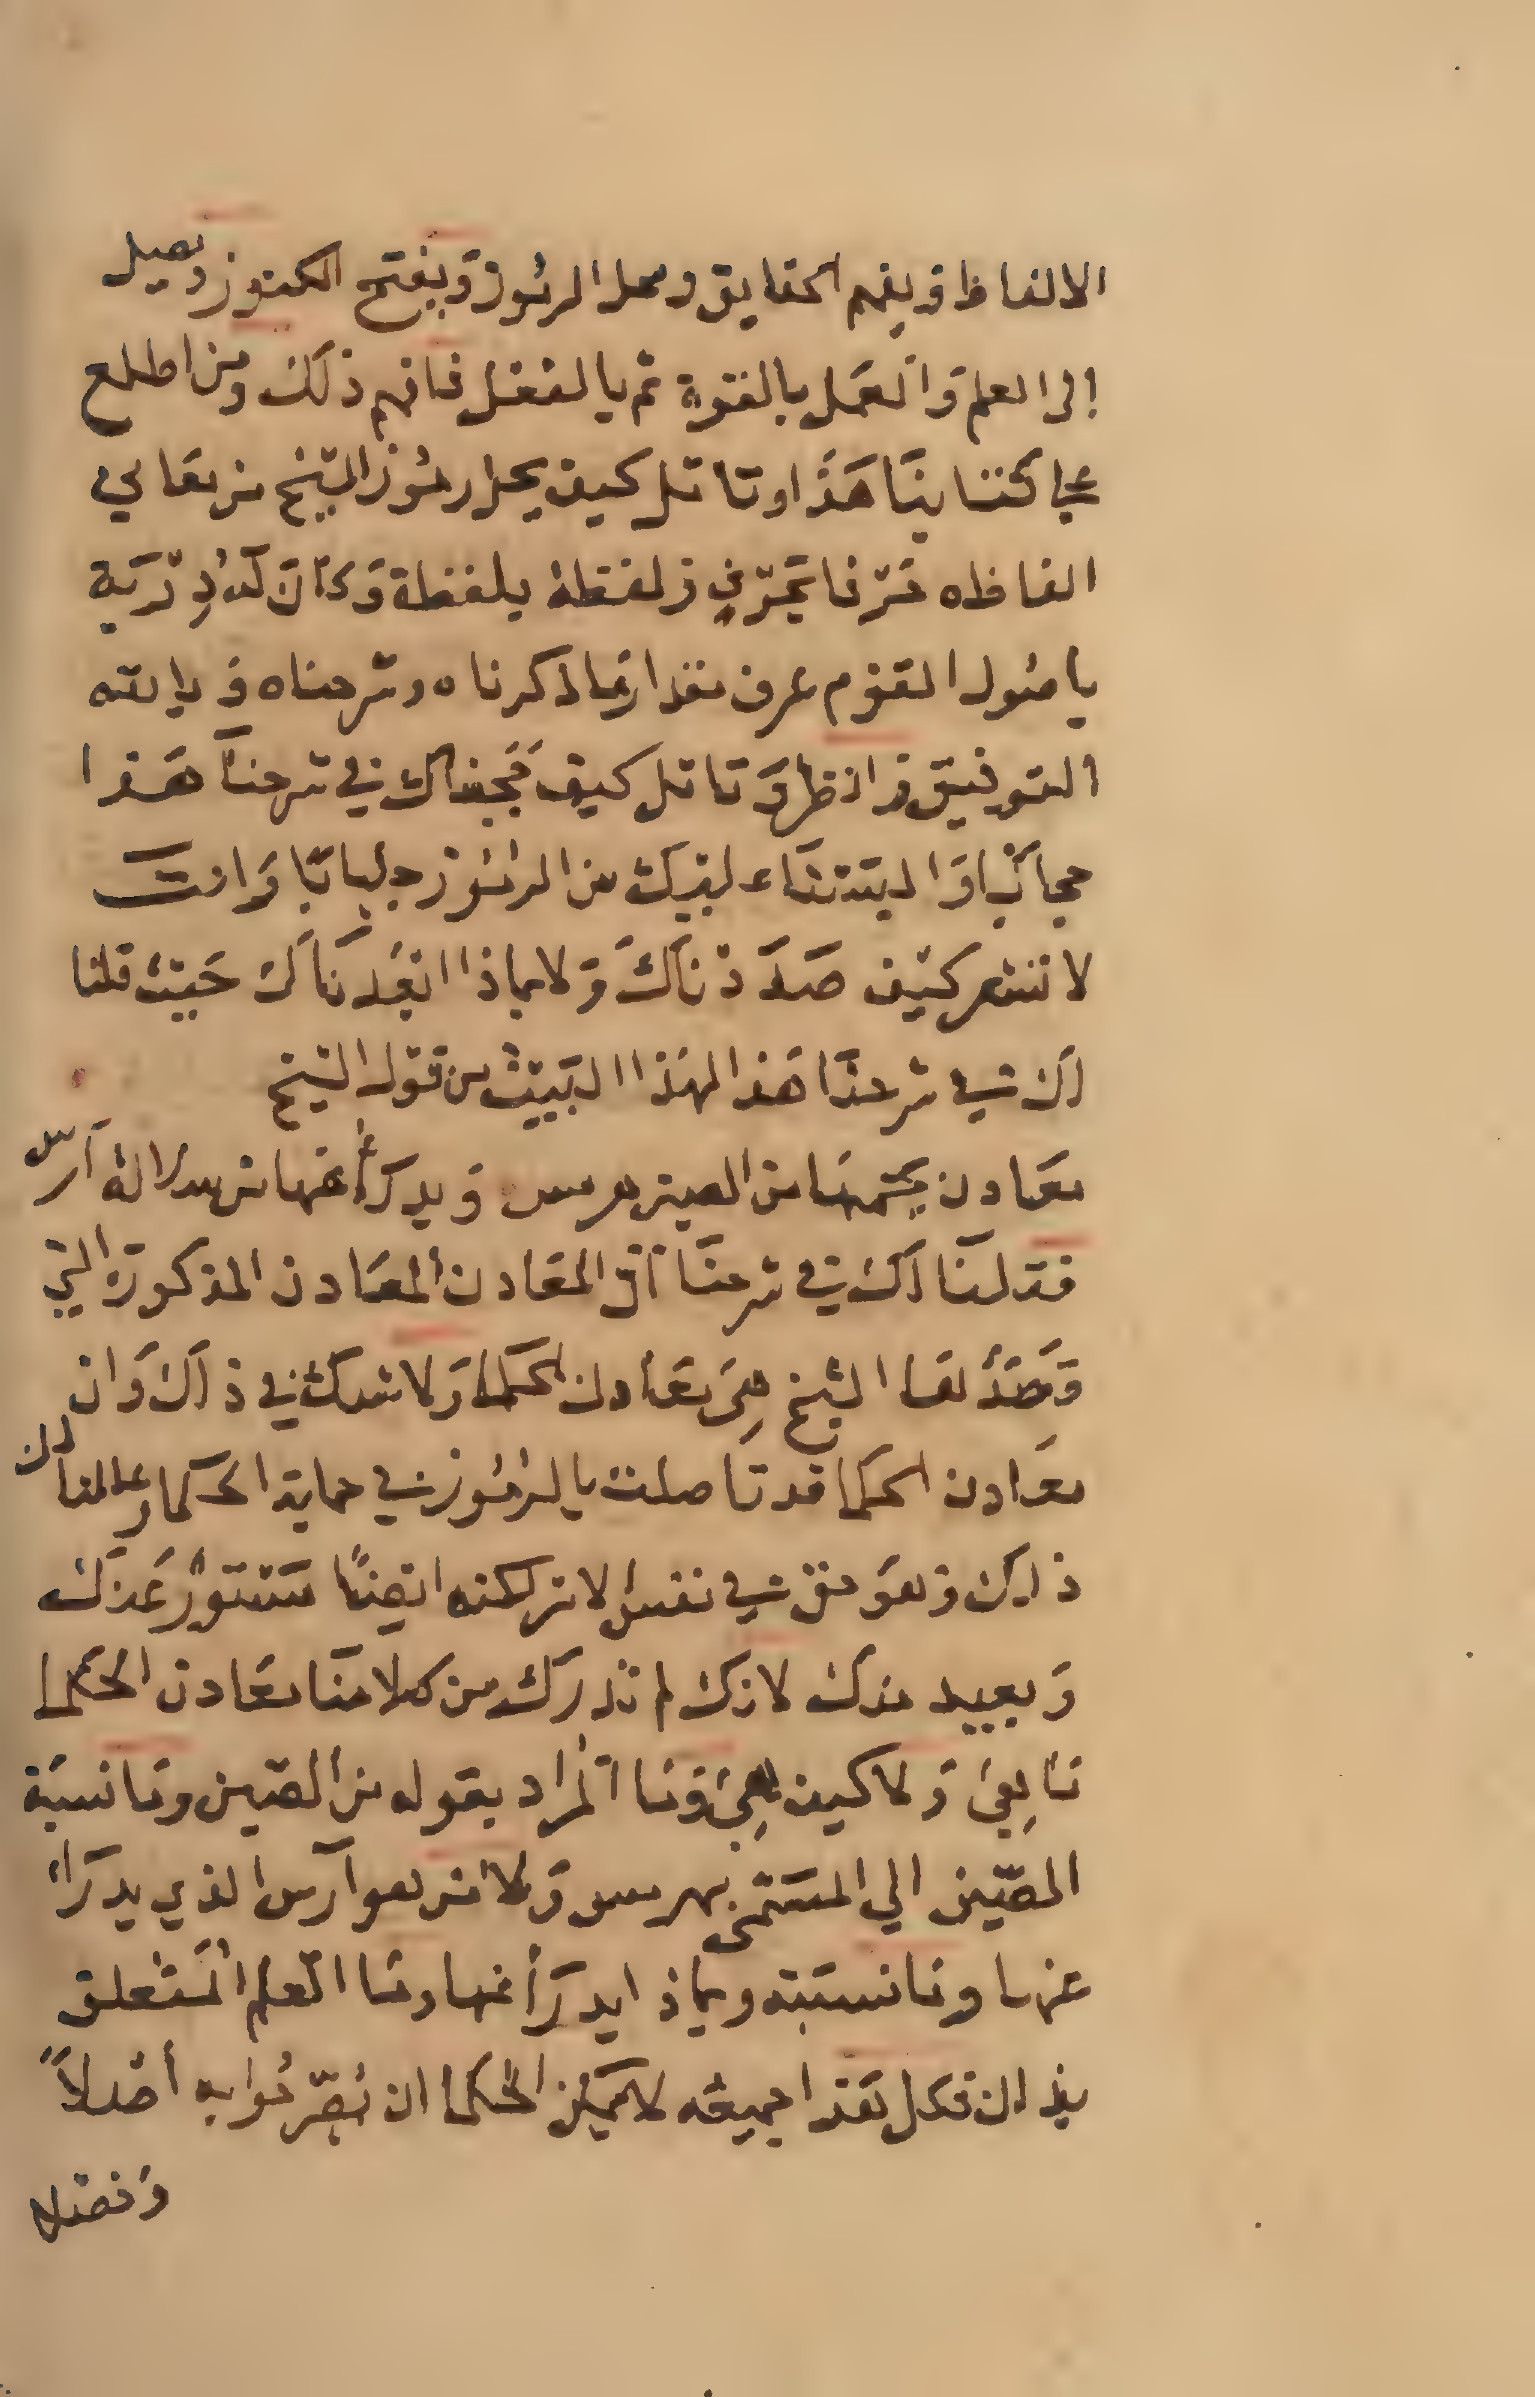 الالفاظ ويفهم الحقايق ويحل الرموز ويفتح الكنوز ويصل
الى العلم والعمل بالقوة ثم بالفعل فافهم ذلك ومن اطلع
على كتابنا هذا وتامل كيف يحل رموز الشيخ من معاني
الفاظه حرفا بحرف ولفظة بلفظة وكان له دربة
باصول القوم عرف مقدار ما ذكرناه وشرحناه وبالله
التوفيق وانظر وتامل كيف حجبناك في شرحنا هذا
حجابا والبسناك لبزك من الرموز جلبابا وانت
لا تشعر كيف صددناك ولا بماذا ابعدناك حيث قلنا
لك في شرحنا هذا لهذا البيت من قول الشيخ
معادن يحتمها من الصين هرمس ويدرأ عنها من سلالة آرس
فقلنا لك في شرحنا ان المعادن المعادن المذكورة التي
وصفها الشيخ هي معادن الحكما ولا شك في ذلك وان
معادن الحكما قد تاصلت بالرموز في حماية الحكما وعالمنا لان
ذلك وهو حق في نفس الامر لكنه ايضا مستور عنك
وبعيد منك لانك لم تدرك من كلامنا معادن الحكما
ما هي ولا كيف هي وما المراد بقوله من الصين وما نسبة
الصين الي المسمى بهرمس ولا من هو آرس الذي يدرأ
عنها وما نسبته وبماذا يدرأ عنها وما العلم المتعلق
بذلك فكل هذا جميعه لا يمكن الحكما ان يصرحوا به اصلاً
وفصلا